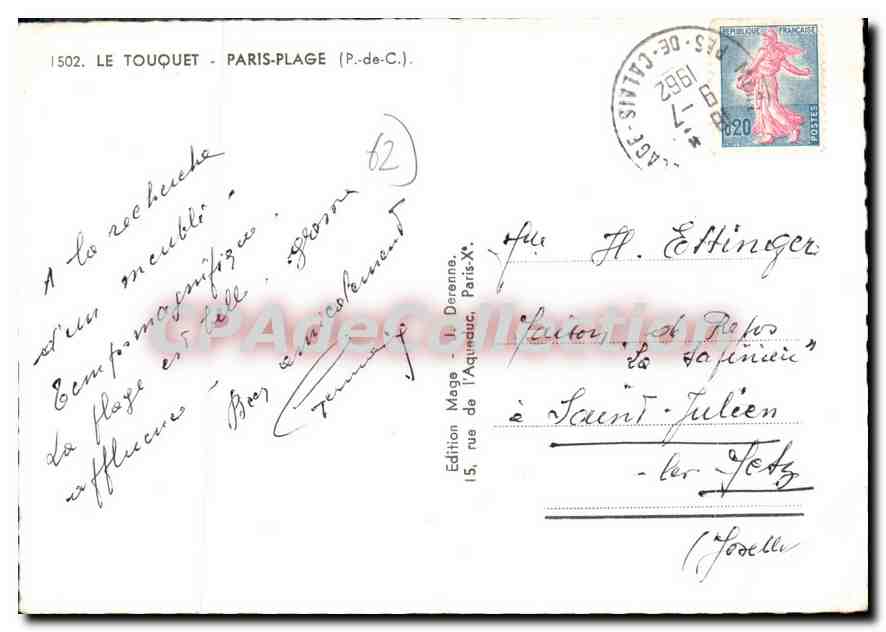 1502. LE TOUQUET - PARIS-PLAGE (P.-de-C.).
62)
A la recherche
d'un meublé.
Temps magnifique.
La plage est belle. grosse
affluence - Bien amicalement
Germaine
Edition Mage - J. Derenne,
15, rue de l'Aqueduc, Paris-Xe.
REPUBLIQUE FRANÇAISE
0,20
POSTES
PAS-DE-CALAIS
-7
1962
Mlle H. Ettinger
Maison de Repos
"La
à Saint-Julien
-les-Metz
(Moselle
CPAdeCollection